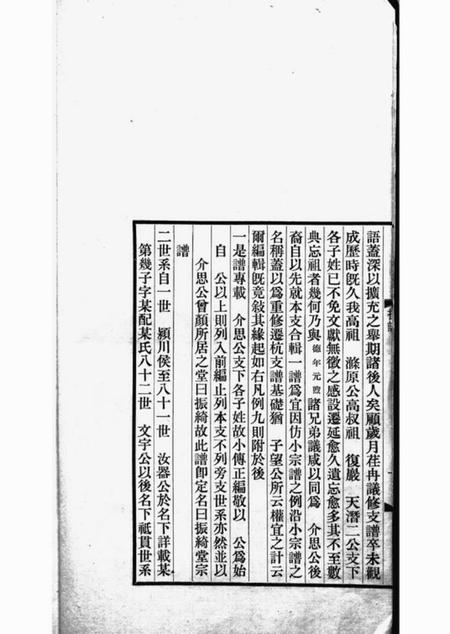 語蓋深以擴充之舉期諸後人矣顧歲月荏冉議修支譜卒未觀
成歷時旣久我高祖 滌原公高叔祖 復嚴 天潛二公支下
各子姓已不免文獻無徵之感設遷延愈久遺忘愈多其不至數
典忘祖者幾何乃與德年元煦諸兄弟議咸以同爲 介思公後
裔自以先就本支合輯一譜爲宜因仿小宗譜之例沿小宗譜之
名稱蓋以爲重修遷杭支譜基礎猶 子望公所云權宜之計云
爾編輯旣竟敍其緣起如右凡例九則附於後
一是譜專載 介思公支下各子姓故小傳正編敬以 公爲始
自 公以上則列入前編止列本支不列旁支世系亦然並以
介思公曾顏所居之堂曰振綺故此譜卽定名曰振綺堂宗
譜
二世系自一世 潁川侯至八十一世 汝器公於名下詳載某
第幾子字某配某氏八十二世 文字公以後名下祗貫世系